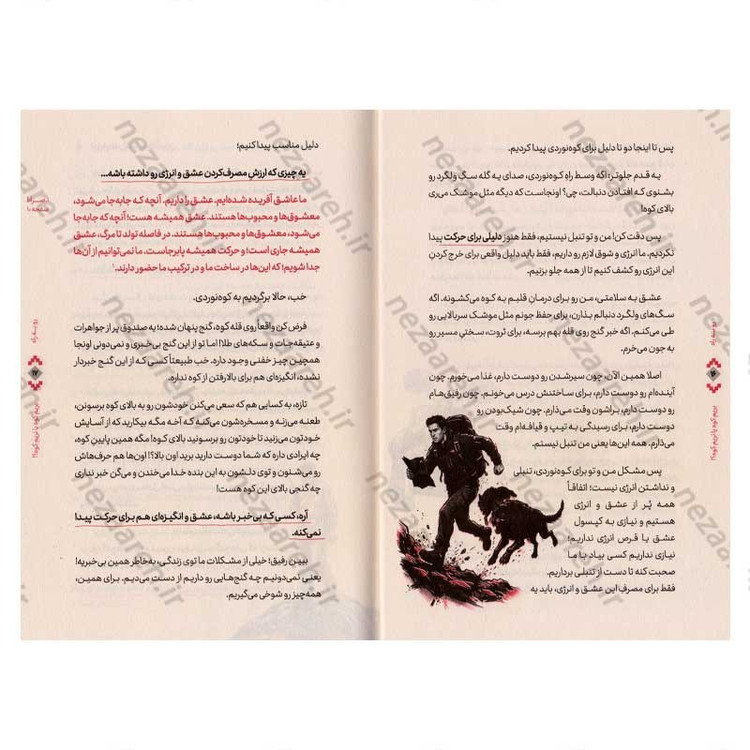 پس تا اینجا دو تا دلیل برای کوه‌نوردی پیدا کردیم.
یه قدم جلوتر: اگه وسط راهِ کوه‌نوردی، صدای یه گله سگ ولگرد رو
بشنوی که افتادن دنبالت، چی؟ اونجاست که دیگه مثل موشک می‌ری
بالای کوه!
پس دقت کن! من و تو تنبل نیستیم، فقط هنوز دلیلی برای حرکت پیدا
نکردیم. ما انرژی و شوق لازم رو داریم، فقط باید دلیل واقعی برای خرج کردنِ
این انرژی رو کشف کنیم تا از همه جلو بزنیم.
عشق به سلامتی، من رو برای درمان قلبم به کوه می‌کشونه. اگه
سگ‌های ولگرد دنبالم بذارن، برای حفظ جونم مثل موشک سربالایی رو
طی می‌کنم. اگه خبر گنج روی قله بهم برسه، برای ثروت، سختی مسیر رو
به جون می‌خرم.
اصلا همین الآن، چون سیرشدن رو دوست دارم، غذا می‌خورم. چون
آینده‌ام رو دوست دارم، برای ساختنش درس می‌خونم. چون رفیق‌هام
رو دوست دارم، براشون وقت می‌ذارم. چون شیک‌بودن رو
دوست دارم، برای رسیدگی به تیپ و قیافه‌ام وقت
می‌ذارم. همه این‌ها یعنی من تنبل نیستم.
پس مشکل من و تو برای کوه‌نوردی، تنبلی
و نداشتن انرژی نیست؛ اتفاقاً
همه پُر از عشق و انرژی
هستیم و نیازی به کپسول
عشق یا قرص انرژی نداریم؛
نیازی نداریم کسی بیاد با ما
صحبت کنه تا دست از تنبلی برداریم.
فقط برای مصرف این عشق و انرژی، باید یه
رو به راه
بریم کوه یا نریم کوه؟!
دلیل مناسب پیدا کنیم؛
یه چیزی که ارزش مصرف‌کردن عشق و انرژی رو داشته باشه...
ما عاشق آفریده شده‌ایم. عشق را داریم. آنچه که جابه‌جا می‌شود،
معشوق‌ها و محبوب‌ها هستند. عشق همیشه هست؛ آنچه که جابه‌جا
می‌شود، معشوق‌ها و محبوب‌ها هستند. در فاصله تولد تا مرگ، عشق
همیشه جاری است؛ و حرکت همیشه پابرجاست. ما نمی‌توانیم از آن‌ها
جدا شویم؛ که این‌ها در ساخت ما و در ترکیب ما حضور دارند.
خب، حالا برگردیم به کوه‌نوردی.
فرض کن واقعا روی قله کوه، گنج پنهان شده؛ یه صندوق پر از جواهرات
و عتیقه‌جات و سکه‌های طلا! اما تو از این گنج بی‌خبری و نمی‌دونی اونجا
همچین چیز خفنی وجود داره. خب طبیعتاً کسی که از این گنج خبردار
نشده، انگیزه‌ای هم برای بالارفتن از کوه نداره.
تازه، به کسایی هم که سعی می‌کنن خودشون رو به بالای کوه برسونن،
طعنه می‌زنه و مسخره‌شون می‌کنه که آخه مگه بیکارید که از آسایش
خودتون می‌زنید تا خودتون رو برسونید بالای کوه! مگه همین پایینِ کوه،
چه ایرادی داره که شما دوست دارید برید اون بالا؟! اون‌ها هم حرف‌هاش
رو می‌شنون و توی دلشون به این بنده خدا می‌خندن و می‌گن خبر نداری
چه گنجی بالای این کوه هست!
آره، کسی که بی‌خبر باشه، عشق و انگیزه‌ای هم برای حرکت پیدا
نمی‌کنه.
ببین رفیق؛ خیلی از مشکلات ما توی زندگی، به‌خاطر همین بی‌خبریه!
یعنی نمی‌دونیم چه گنج‌هایی رو داریم از دست می‌دیم. برای همین،
همه‌چیز رو شوخی می‌گیریم.
رو به راه
۱۷
بریم کوه یا نریم کوه؟!
nezaareh.ir